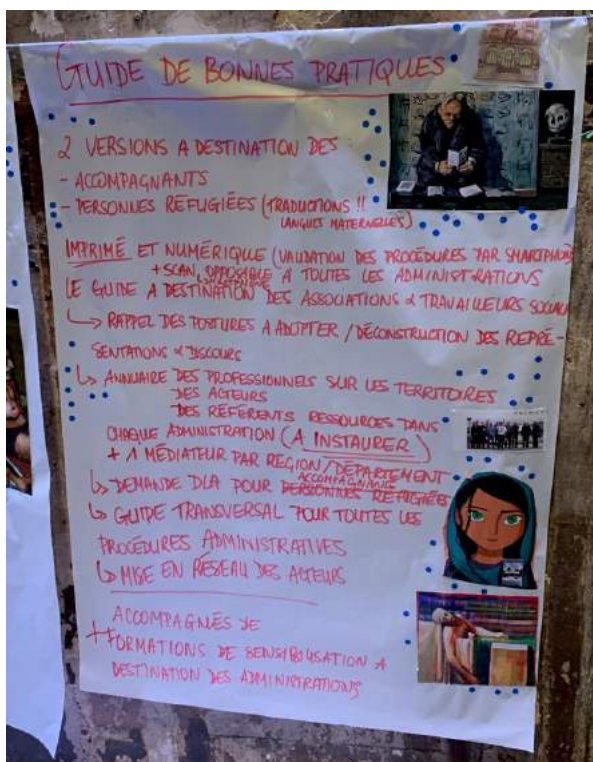 GUIDE DE BONNES PRATIQUES
2 VERSIONS A DESTINATION DES :
- ACCOMPAGNANTS
- PERSONNES RÉFUGIÉES (TRADUCTIONS !!
LANGUES MATERNELLES)
IMPRIMÉ ET NUMÉRIQUE (VALIDATION DES PROCÉDURES PAR SMARTPHONE)
+ SCAN, OPPOSABLE A TOUTES LES ADMINISTRATIONS
LE GUIDE A DESTINATION DES ASSOCIATIONS & TRAVAILLEURS SOCIAUX
↳ RAPPEL DES POSTURES A ADOPTER / DÉCONSTRUCTION DES REPRÉ-
SENTATIONS & DISCOURS
↳ ANNUAIRE DES PROFESSIONNELS SUR LES TERRITOIRES
DES ACTEURS
DES RÉFÉRENTS RESSOURCES DANS
CHAQUE ADMINISTRATION (A INSTAURER)
+ 1 MÉDIATEUR PAR RÉGION/DÉPARTEMENT
ACCOMPAGNANCE
↳ DEMANDE DLA POUR PERSONNES RÉFUGIÉES
↳ GUIDE TRANSVERSAL POUR TOUTES LES
PROCÉDURES ADMINISTRATIVES
↳ MISE EN RÉSEAU DES ACTEURS
ACCOMPAGNÉS DE
++ FORMATIONS DE SENSIBILISATION A
DESTINATION DES ADMINISTRATIONS